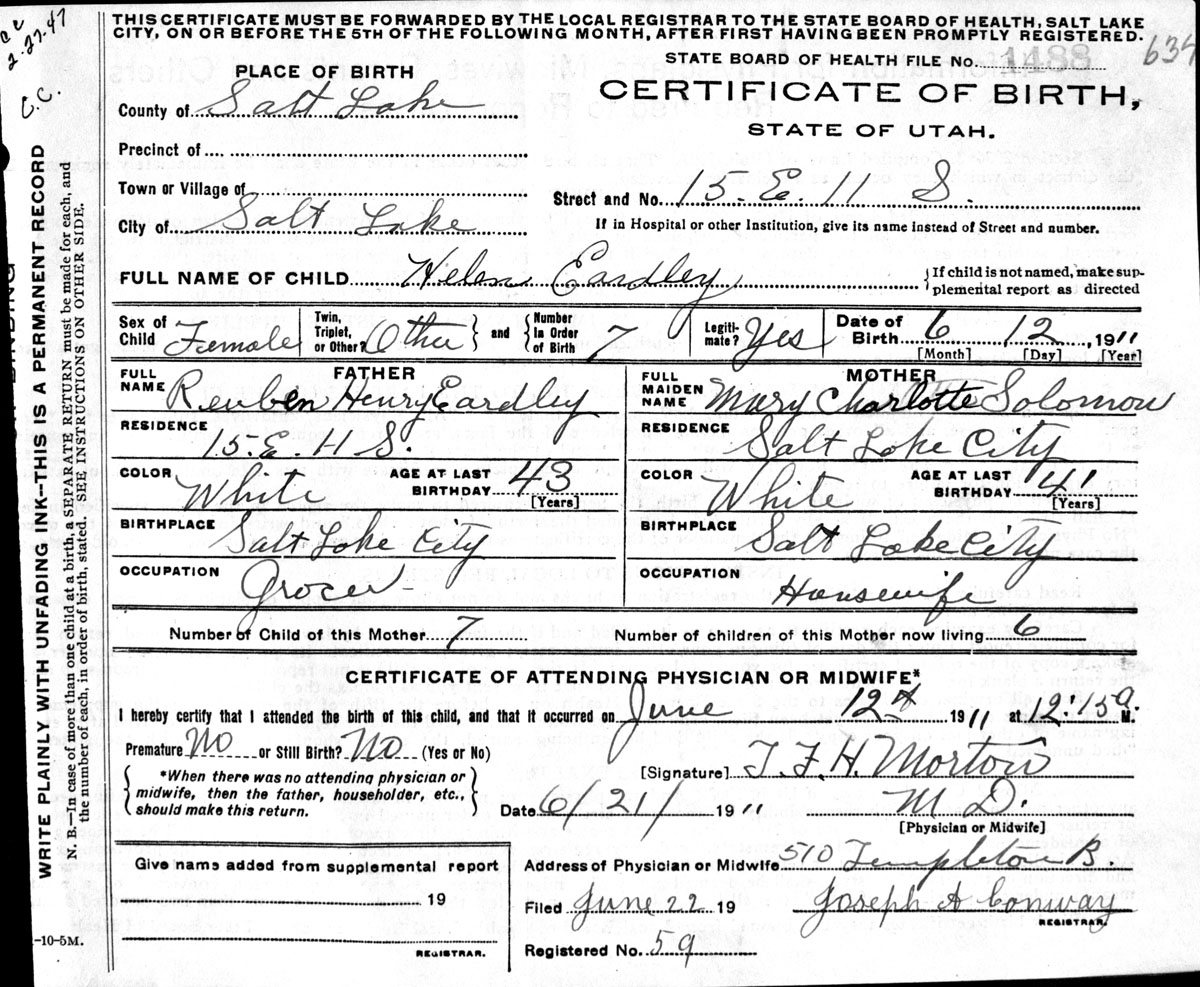 THIS CERTIFICATE MUST BE FORWARDED BY THE LOCAL REGISTRAR TO THE STATE BOARD OF HEALTH, SALT LAKE
CITY, ON OR BEFORE THE 5TH OF THE FOLLOWING MONTH, AFTER FIRST HAVING BEEN PROMPTLY REGISTERED.
2.27.47
C.C.
STATE BOARD OF HEALTH FILE No. 1488
634
PLACE OF BIRTH
CERTIFICATE OF BIRTH,
STATE OF UTAH.
County of Salt Lake
Precinct of
Town or Village of
Street and No. 15. E. 11 S.
City of Salt Lake
If in Hospital or other Institution, give its name instead of Street and number.
FULL NAME OF CHILD Helen Eardley
{If child is not named, make sup-
plemental report as directed
Sex of Child Female
Twin, Triplet, or Other? Other } and { Number In Order of Birth 7
Legiti-mate? Yes
Date of Birth 6 12, 1911
[Month] [Day] [Year]
FATHER
FULL NAME Reuben Henry Eardley
MOTHER
FULL MAIDEN NAME Mary Charlotte Solomon
RESIDENCE 15. E. H S.
RESIDENCE Salt Lake City
COLOR White AGE AT LAST BIRTHDAY 43 [Years]
COLOR White AGE AT LAST BIRTHDAY 41 [Years]
BIRTHPLACE Salt Lake City
BIRTHPLACE Salt Lake City
OCCUPATION Grocer
OCCUPATION Housewife
Number of Child of this Mother 7 Number of children of this Mother now living 6
CERTIFICATE OF ATTENDING PHYSICIAN OR MIDWIFE*
I hereby certify that I attended the birth of this child, and that it occurred on June 12 1911 at 12:15 a. M.
Premature No or Still Birth? No (Yes or No)
{ *When there was no attending physician or
midwife, then the father, householder, etc.,
should make this return. }
[Signature] T. F. H. Morton
Date 6/21/ 1911 M D.
[Physician or Midwife]
Give name added from supplemental report
19
REGISTRAR.
Address of Physician or Midwife 510 Templeton B.
Filed June 22 19 Joseph A Conway
REGISTRAR.
Registered No. 59
-10-5M.
WRITE PLAINLY WITH UNFADING INK--THIS IS A PERMANENT RECORD
N. B.--In case of more than one child at a birth, a SEPARATE RETURN must be made for each, and
the number of each, in order of birth, stated. SEE INSTRUCTIONS ON OTHER SIDE.